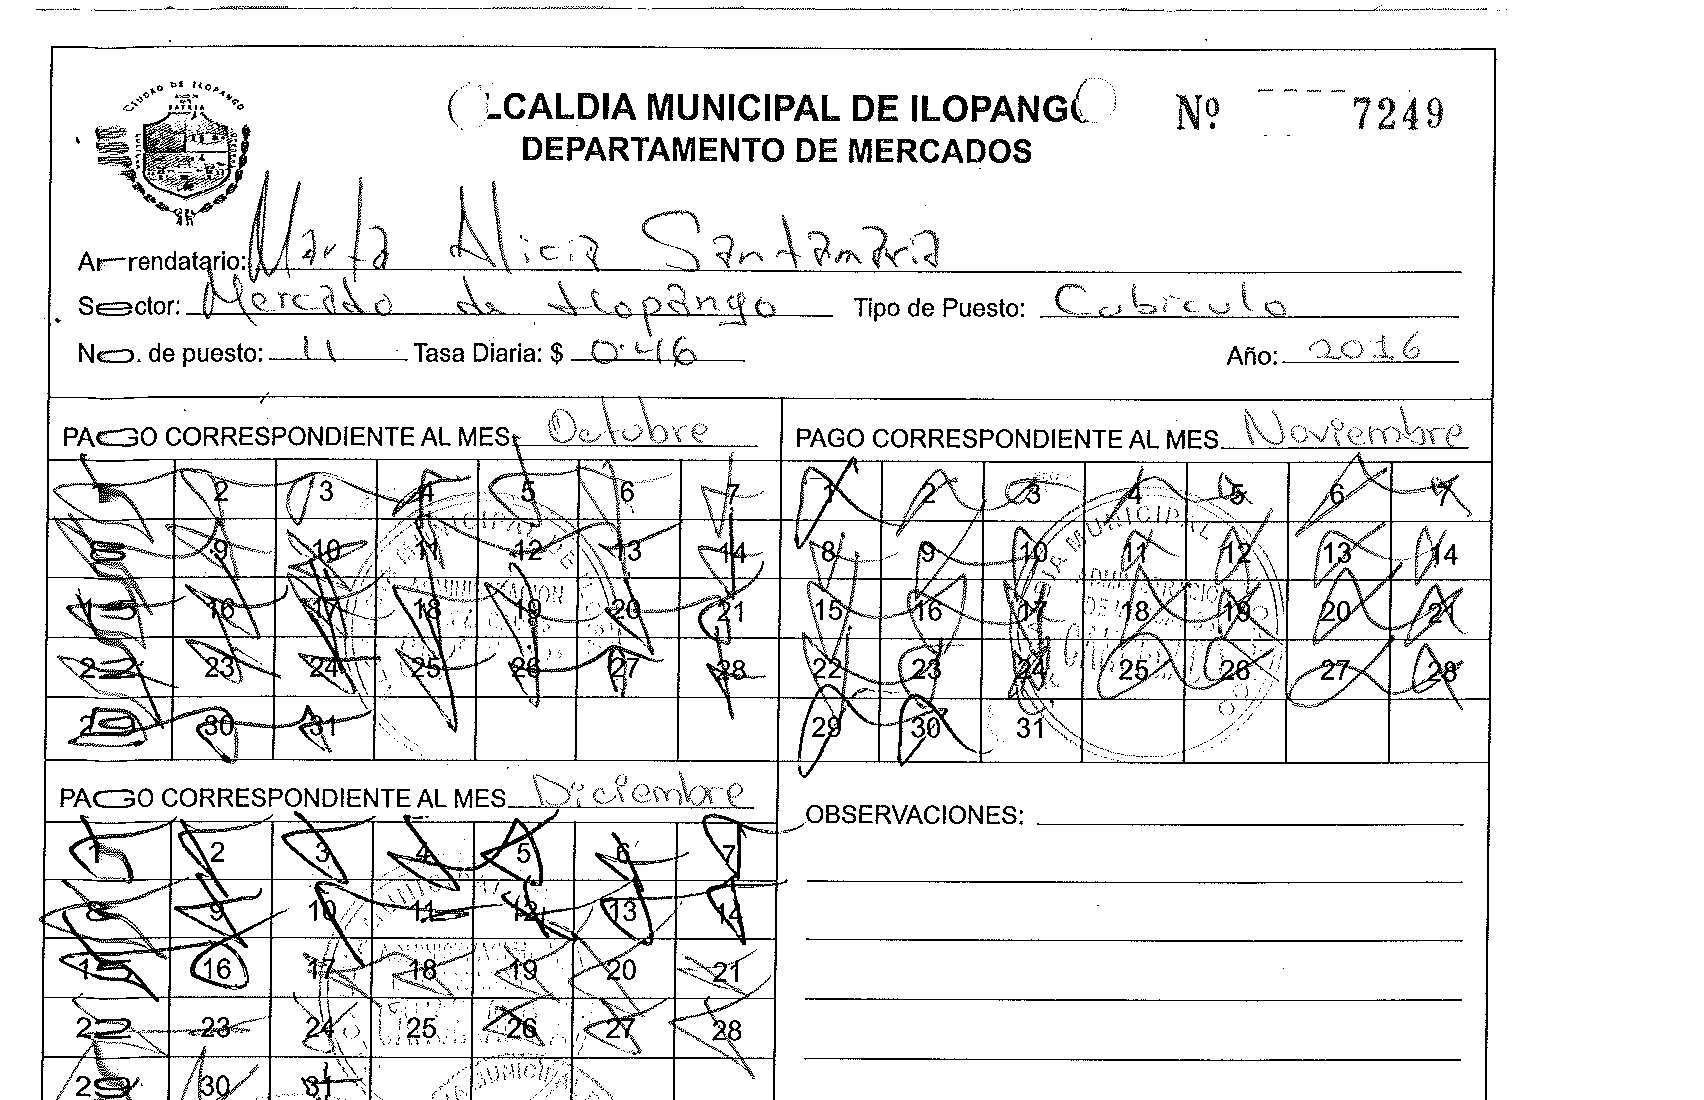 CIUDAD DE ILOPANGO
ALCALDIA MUNICIPAL DE ILOPANGO
DEPARTAMENTO DE MERCADOS
Nº 7249
Arrendatario: Marta Alicia Santamaria
Sector: Mercado de Ilopango Tipo de Puesto: Cubiculo
No. de puesto: 11 Tasa Diaria: $ 0.46 Año: 2016
PAGO CORRESPONDIENTE AL MES. Octubre
1 2 3 4 5 6 7
8 9 10 11 12 13 14
15 16 17 18 19 20 21
22 23 24 25 26 27 28
29 30 31
PAGO CORRESPONDIENTE AL MES. Noviembre
1 2 3 4 5 6 7
8 9 10 11 12 13 14
15 16 17 18 19 20 21
22 23 24 25 26 27 28
29 30 31
PAGO CORRESPONDIENTE AL MES. Diciembre
1 2 3 4 5 6 7
8 9 10 11 12 13 14
15 16 17 18 19 20 21
22 23 24 25 26 27 28
29 30 31
OBSERVACIONES: